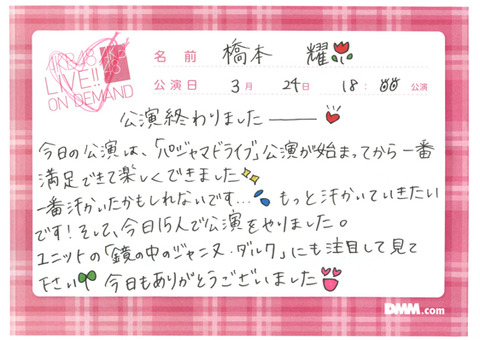 AKB48
LIVE!!
ON DEMAND
名前 橋本 耀
公演日 3月 24日 18:00 公演
公演終わりました――
今日の公演は、「パジャマドライブ」公演が始まってから一番
満足できて楽しくできました
一番汗かいたかもしれないです… もっと汗かいていきたい
です！そして、今日15人で公演をやりました。
ユニットの「鏡の中のジャンヌ・ダルク」にも注目して見て
下さい 今日もありがとうございました
DMM.com